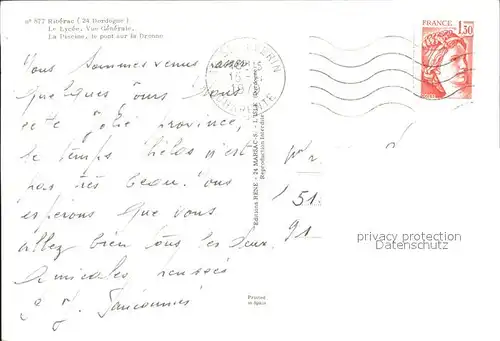 n° 877 Ribérac (24 Dordogne)
Le Lycée, Vue Générale,
La Piscine, le pont sur la Dronne
FRANCE
1,30
Nous sommes venus passer
quelques jours dans
cette jolie province,
le temps hélas n'est
pas très beau. Nous
espérons que vous
allez bien tous les deux.
Amicales pensées
Editions RENE - 24 MARSAC-S.-L'ISLE (Dordogne)
Reproduction Interdite
CHARENTE
51.
91
privacy protection
Datenschutz
Printed
in Spain